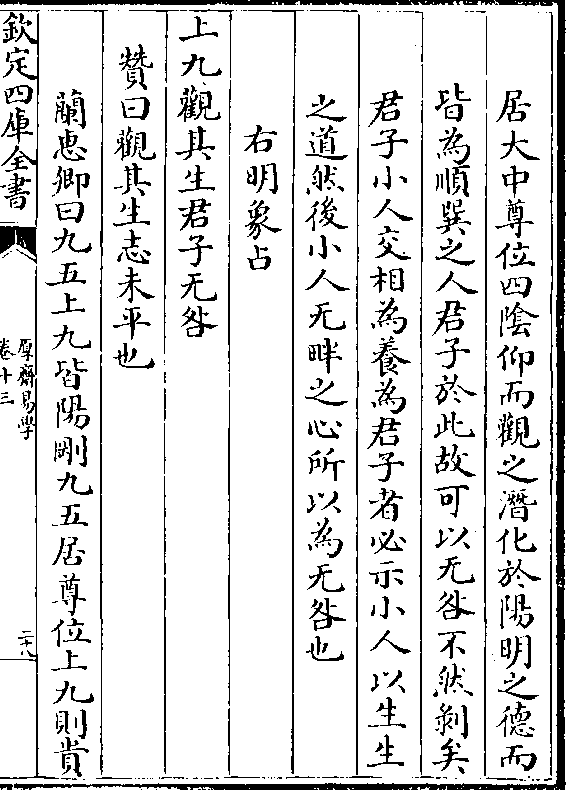 居大中尊位四陰仰而觀之潛化於陽明之德而
皆為順巽之人君子於此故可以无咎不然剥矣
君子小人交相為養為君子者必示小人以生生
之道然後小人无畔之心所以為无咎也
右明象占
上九觀其生君子无咎
贊曰觀其生志未平也
蘭惠卿曰九五上九皆陽剛九五居尊位上九則貴
欽定四庫全書
厚齋易學
卷十三
二十八